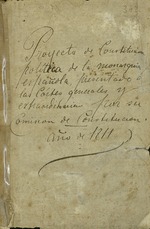 Proyecto de Constitucion
politica de la monarquia
española presentado á
las Córtes generales y
extraordinarias por su
comision de Constitucion.
año de 1811